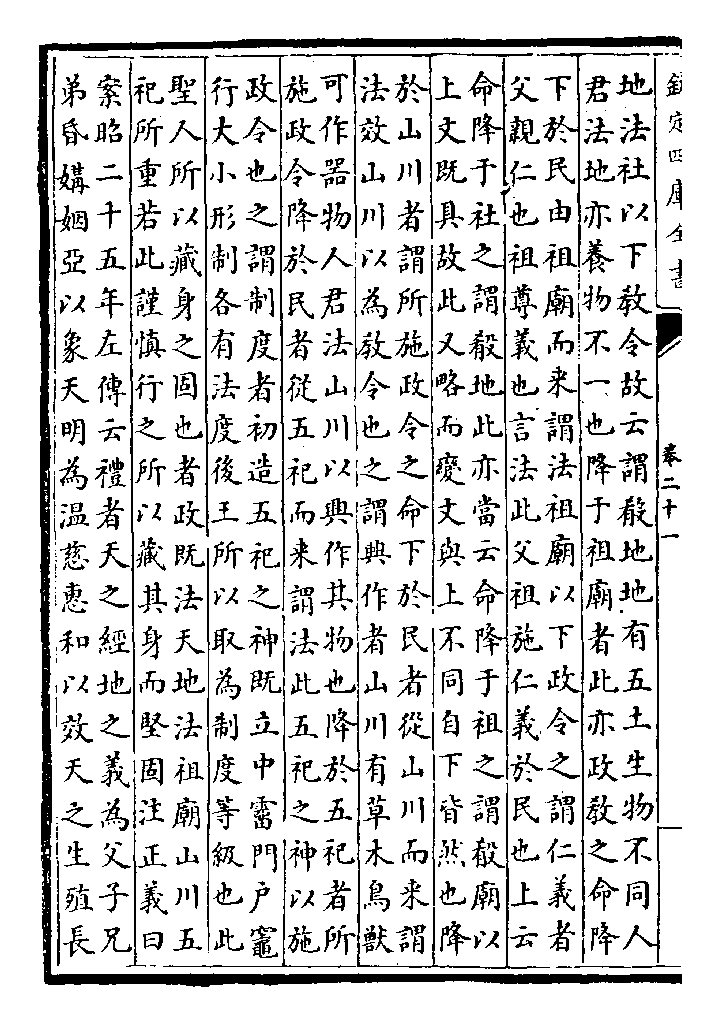 欽定四庫全書
卷二十一
地法社以下教令故云謂殽地地有五土生物不同人
君法地亦養物不一也降于祖廟者此亦政教之命降
下於民由祖廟而来謂法祖廟以下政令之謂仁義者
父親仁也祖尊義也言法此父祖施仁義於民也上云
命降于社之謂殽地此亦當云命降于祖之謂殽廟以
上文既具故此又略而變文與上不同自下皆然也降
於山川者謂所施政令之命下於民者從山川而来謂
法效山川以為教令也之謂興作者山川有草木鳥獸
可作器物人君法山川以興作其物也降於五祀者所
施政令降於民者從五祀而来謂法此五祀之神以施
政令也之謂制度者初造五祀之神既立中霤門户竈
行大小形制各有法度後王所以取為制度等級也此
聖人所以藏身之固也者政既法天地法祖廟山川五
祀所重若此謹慎行之所以藏其身而堅固注正義曰
案昭二十五年左傳云禮者天之經地之義為父子兄
弟昏媾姻亞以象天明為温慈惠和以效天之生殖長